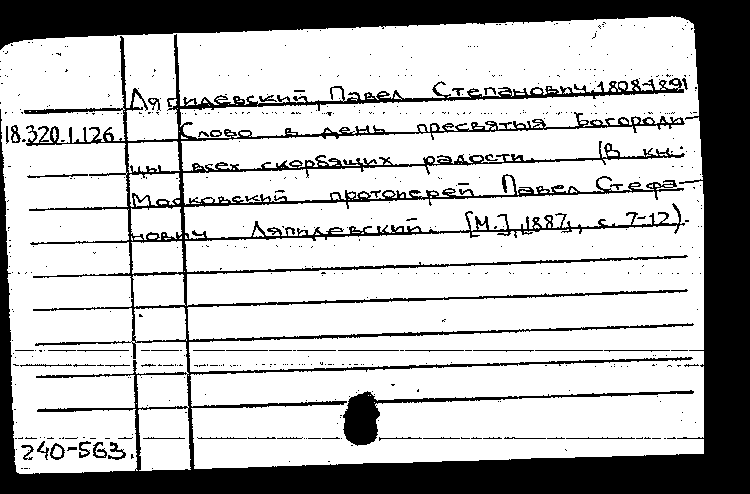 Ляпидевский, Павел Степанович, 1808-1891
18.320.1.126. Слово в день пресвятыя Богороди-
цы всех скорбящих радости. (В кн.:
Московский протоиерей Павел Стефа-
нович Ляпидевский. [М.], 1887, с. 7-12).
240-563.